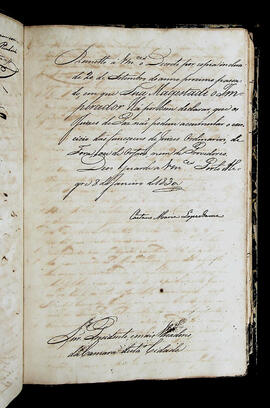 Remetto a V.ces o Decreto por copia incluza
de 20 de Setembro do anno proximo passa-
do, em que Sua Magestade o Im-
perador ha por bem declarar, que os
Juizes de Paz não podem accumular o exer-
cicio das funcções de Juizes Ordinarios, de
Fora, ou de Orfaos nem de Provedoria
Deos Guarde a V.ces Porto Ale-
gre 8 de Janeiro de 1830
Caetano Maria Lopes Gama
Snr. Presidente, e mais Vereadores
da Camara desta Cidade